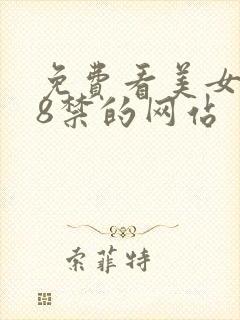 免费看美女
8禁的网佔
索菲特